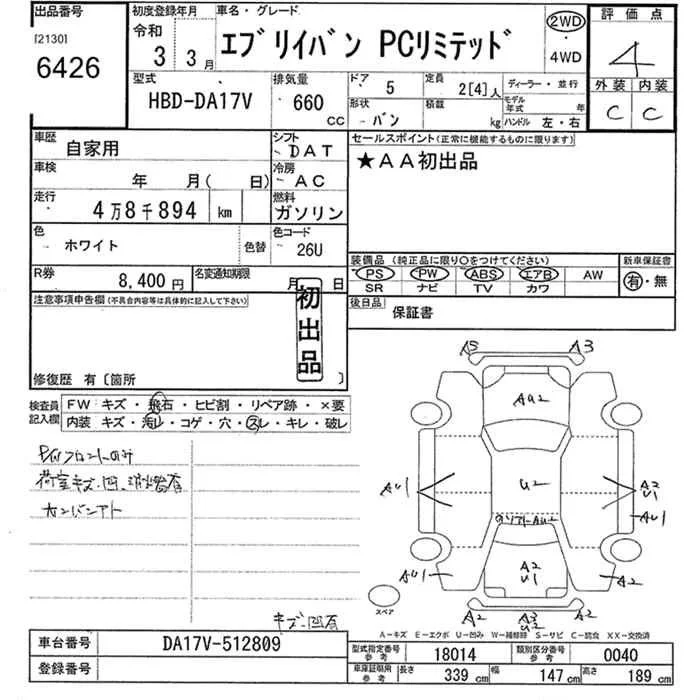 出品番号 初度登録年月 車名・グレード 評価点
[2130]
6426
令和
3 3月
エブリイバン PCリミテッド
2WD
・
4WD
4
型式 排気量 ドア 5 定員 2[4]人 ディーラー・並行
HBD-DA17V 660 CC
形状 バン 積載 kg
モデル年式 年
ハンドル 左・右
外装 内装
C C
車歴 自家用 シフト DAT
セールスポイント(正常に機能するものに限ります)
★AA初出品
車検 年 月( 日) 冷房 AC
走行 4万8千894 km 燃料 ガソリン
色 ホワイト 色替 色コード 26U
装備品 (純正品に限り○をつけてください) 新車保証書
PS PW ABS エアB AW 有・無
SR ナビ TV カワ
R券 8,400円 名変通知期限 月 日
後日品 保証書
注意事項申告欄(不具合内容等は具体的に記入して下さい)
初出品
修復歴 有〔箇所 〕
検査員記入欄
FW キズ・飛石・ヒビ割・リペア跡・×要
内装 キズ・汚レ・コゲ・穴・スレ・キレ・破レ
荷室キズ
カンバンアト
キズ・凹有
AS A3
AU2
AU1 U2 A2
U1
AU1
AU2
AU1 A2
U1 A2
スペア
A2 A3
U2 A2
A-キズ E-エクボ U-凹み W-補修跡 S-サビ C-腐食 XX-交換済
車台番号 DA17V-512809
登録番号
型式指定番号 参考 18014 類別区分番号 参考 0040
車庫証明用 参考 長さ 339 cm 幅 147 cm 高さ 189 cm